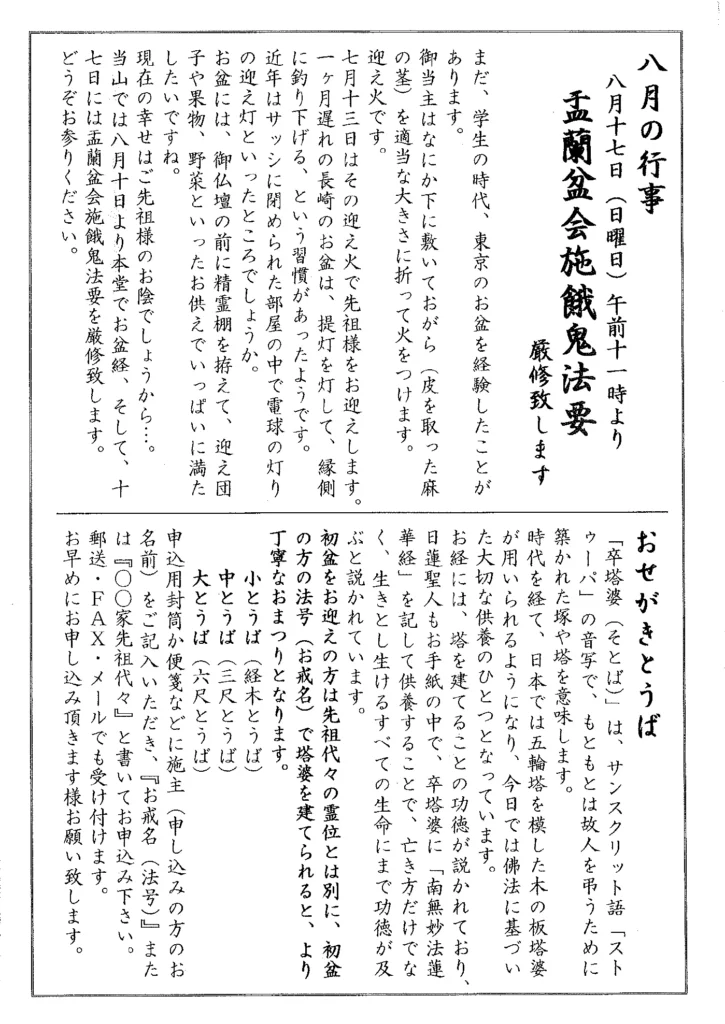 八月の行事
八月十七日（日曜日）午前十一時より
盂蘭盆会施餓鬼法要
厳修致します
まだ、学生の時代、東京のお盆を経験したことが
あります。
御当主はなにか下に敷いておがら（皮を取った麻
の茎）を適当な大きさに折って火をつけます。
迎え火です。
七月十三日はその迎え火で先祖様をお迎えします。
一ヶ月遅れの長崎のお盆は、提灯を灯して、縁側
に釣り下げる、という習慣があったようです。
近年はサッシに閉められた部屋の中で電球の灯り
の迎え灯といったところでしょうか。
お盆には、御仏壇の前に精霊棚を拵えて、迎え団
子や果物、野菜といったお供えでいっぱいに満た
したいですね。
現在の幸せはご先祖様のお陰でしょうから…。
当山では八月十日より本堂でお盆経、そして、十
七日には盂蘭盆会施餓鬼法要を厳修致します。
どうぞお参りください。
おせがきとうば
「卒塔婆（そとば）」は、サンスクリット語「スト
ゥーパ」の音写で、もともとは故人を弔うために
築かれた塚や塔を意味します。
時代を経て、日本では五輪塔を模した木の板塔婆
が用いられるようになり、今日では佛法に基づい
た大切な供養のひとつとなっています。
お経には、塔を建てることの功徳が説かれており、
日蓮聖人もお手紙の中で、卒塔婆に「南無妙法蓮
華経」を記して供養することで、亡き方だけでな
く、生きとし生けるすべての生命にまで功徳が及
ぶと説かれています。
初盆をお迎えの方は先祖代々の霊位とは別に、初盆
の方の法号（お戒名）で塔婆を建てられると、より
丁寧なおまつりとなります。
小とうば（経木とうば）
中とうば（三尺とうば）
大とうば（六尺とうば）
申込用封筒か便箋などに施主（申し込みの方のお
名前）をご記入いただき、『お戒名（法号）』また
は『〇〇家先祖代々』と書いてお申込み下さい。
郵送・FAX・メールでも受け付けます。
お早めにお申し込み頂きます様お願い致します。